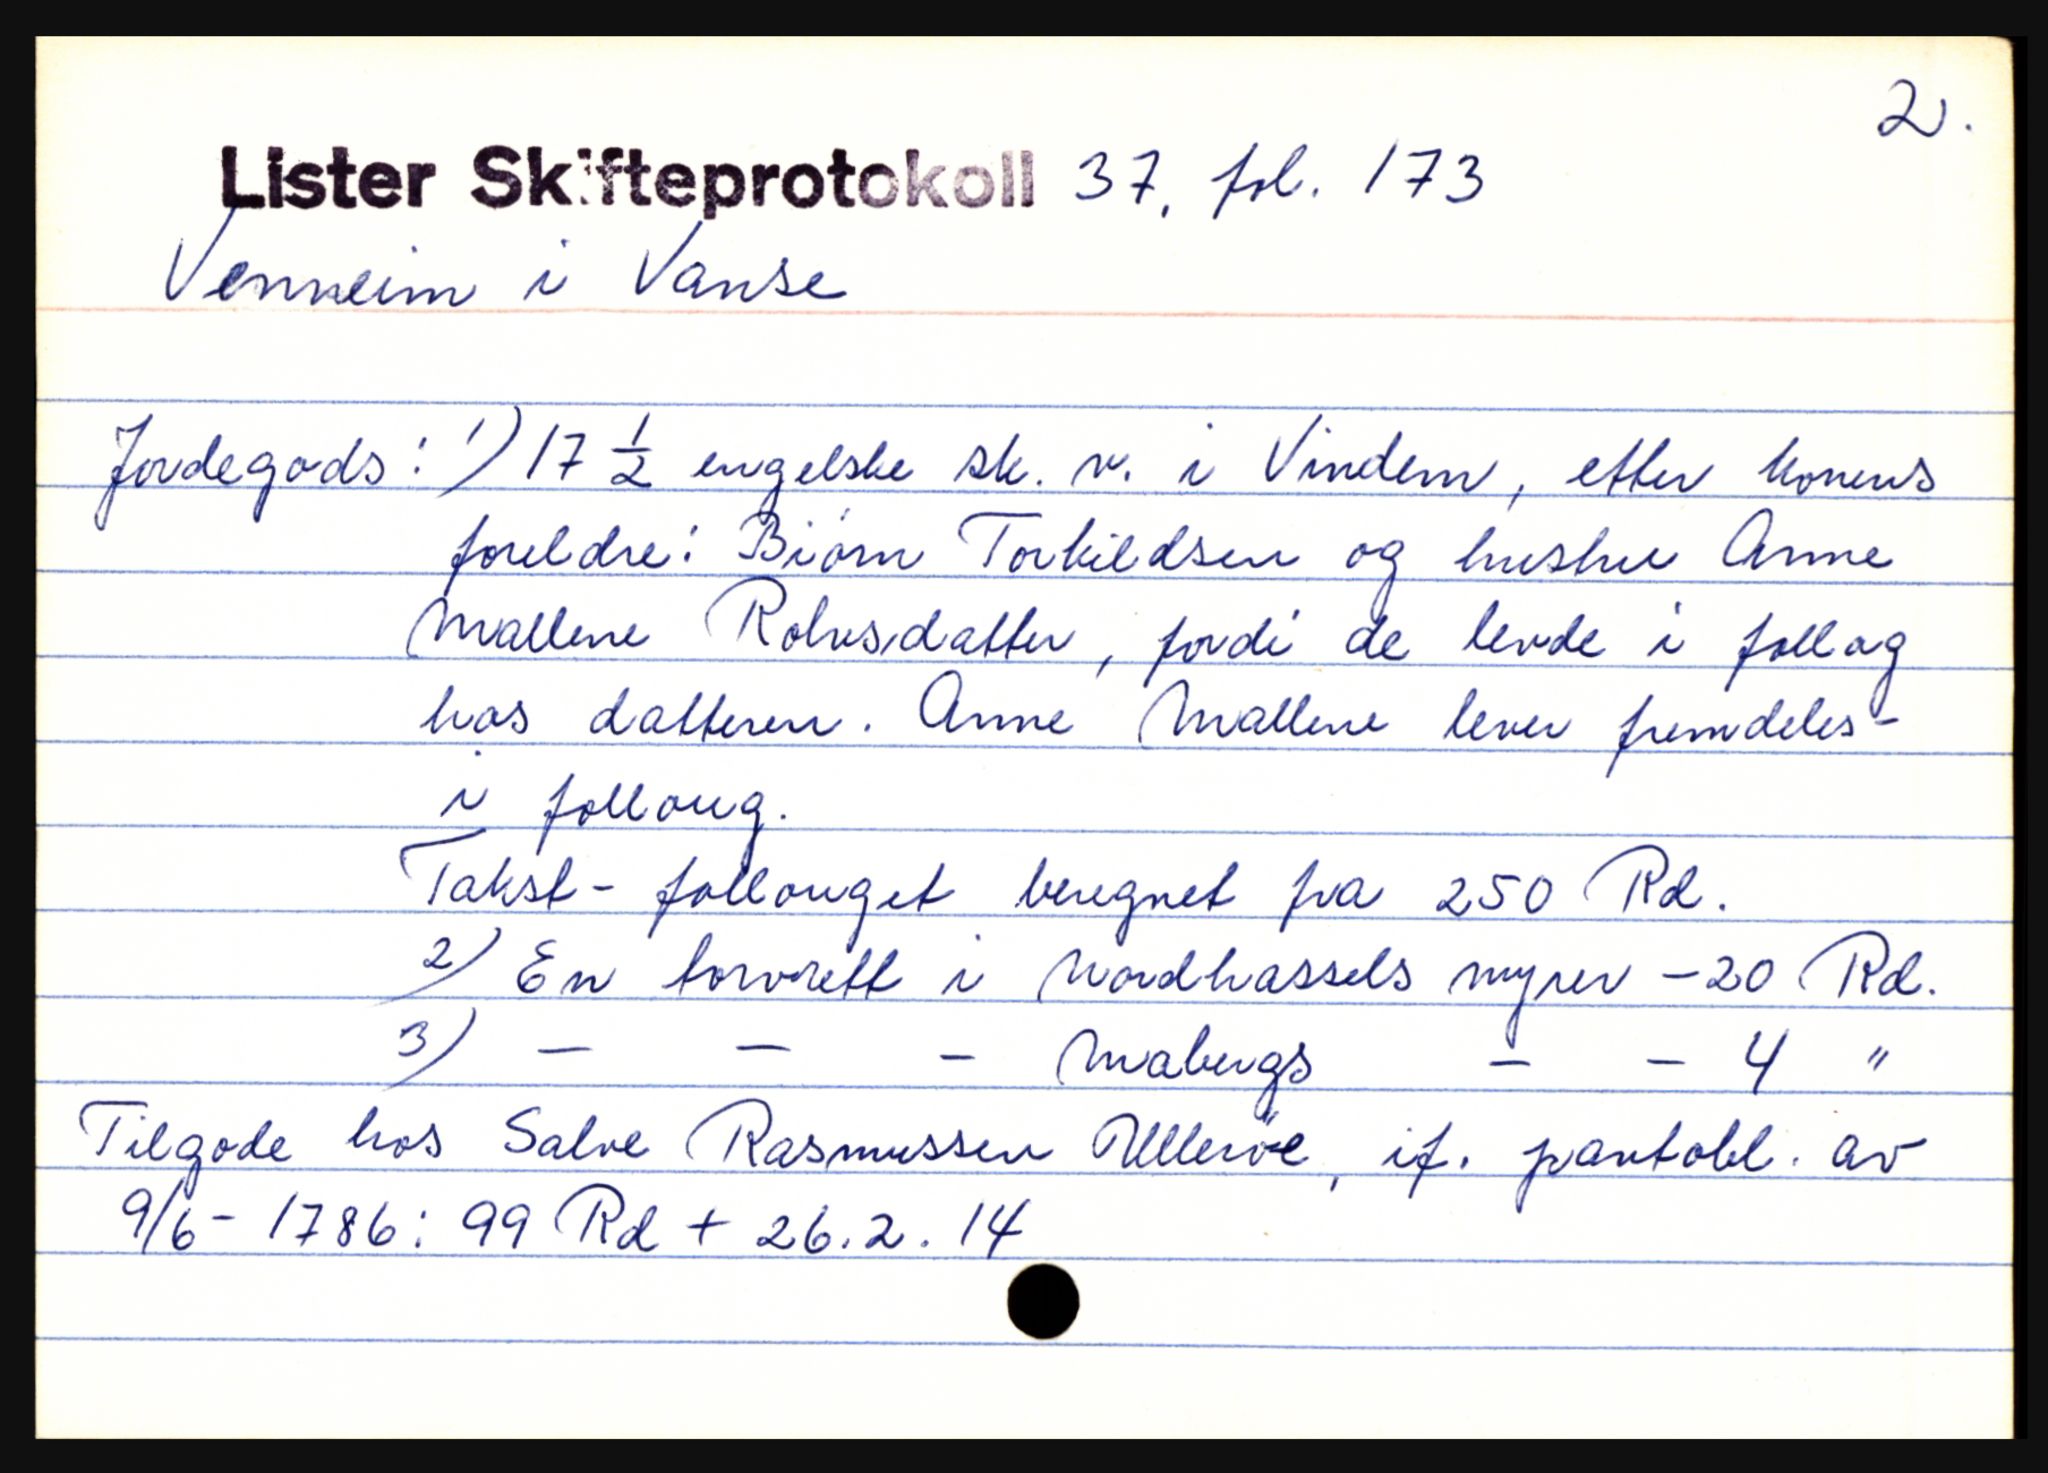 2.
Lister Skifteprotokoll 37, fol. 173
Venneim i Vanse
Jordegods: 1) 17 1/2 engelske sk. v. i Vindem, etter konens
foreldre: Biørn Torkildsen og hustru Anne
Mallene Rolvsdatter, fordi de levde i follag
hos datteren. Anne Mallene lever fremdeles -
i folloug.
Takst - follouget beregnet fra 250 Rd.
2) En torvrett i Nordhassels myrer - 20 Rd.
3) — — - Mabergs — — 4 "
Tilgode hos Salve Rasmussen Ulleröe, if. pantobl. av
9/6 - 1786: 99 Rd + 26.2.14